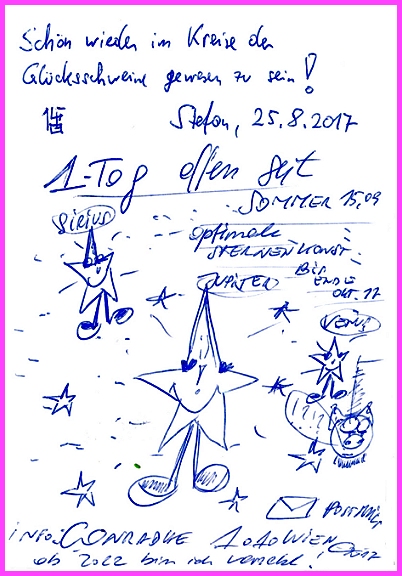 Schön wieder im Kreise der
Glücksschweine gewesen zu sein!
Stefan, 25.8.2017
1-Tag offen seit
SOMMER 15,09
SIRIUS
optimale
STERNENKONST.
BIS
ENDE
OKT. 17
JUPITER
VENUS
INFO: CONRADHE 1010 WIEN
ab 2022 bin ich verrückt!